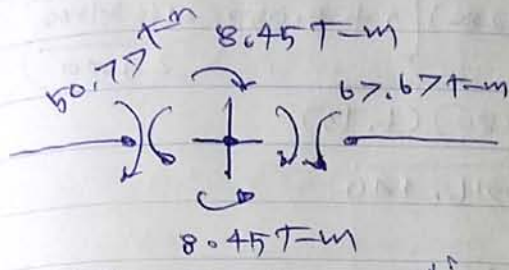 50.77 t-m
8.45 T-m
67.67 t-m
8.45 T-m